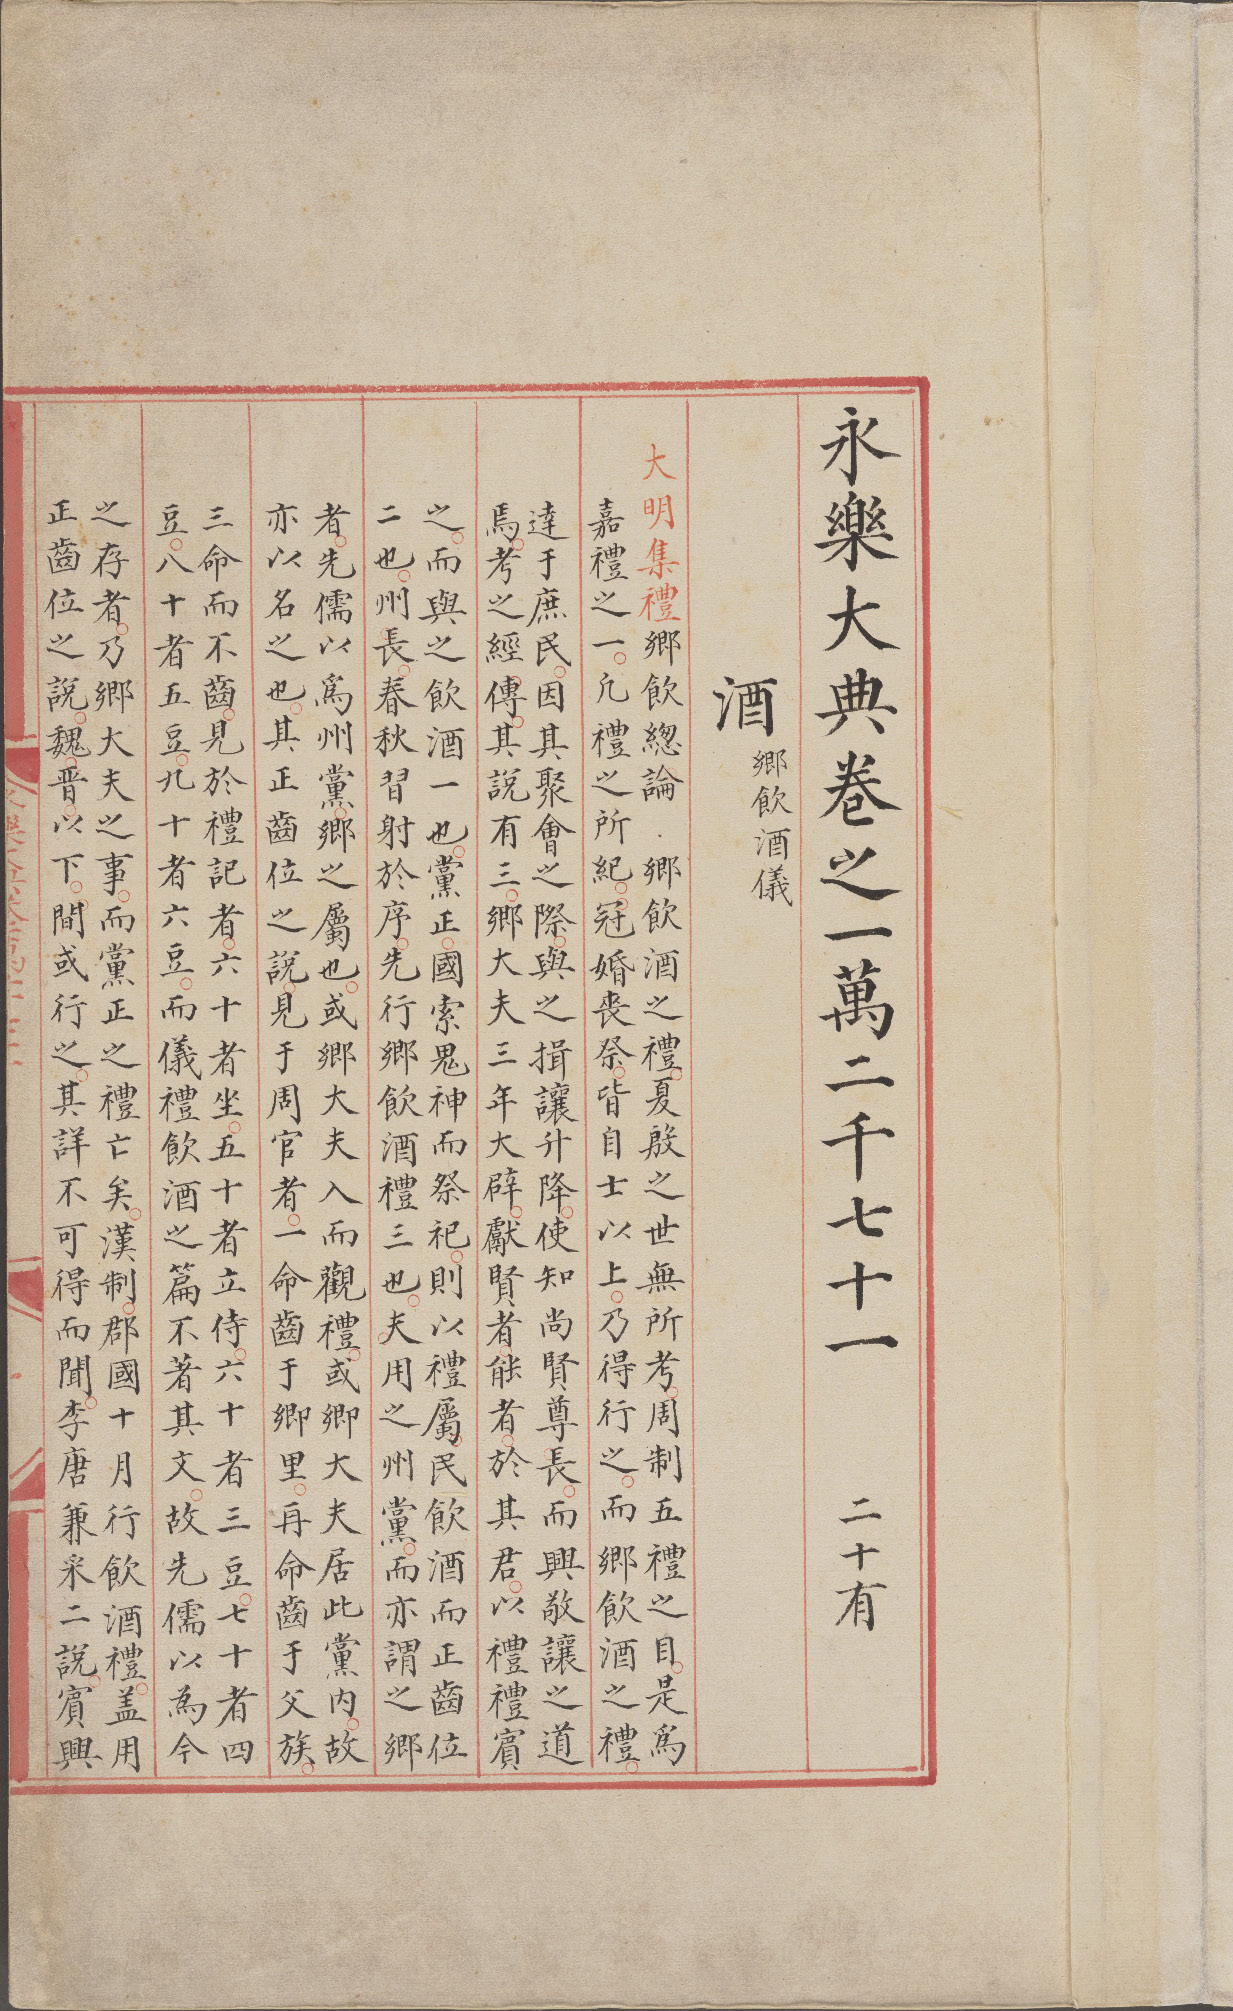 永樂大典卷之一萬二千七十一 二十有
酒 鄉飲酒儀
大明集禮鄉飲總論 鄉飲酒之禮夏殷之世無所考周制五禮之目是爲
嘉禮之一凢禮之所紀冠婚丧祭皆自士以上乃得行之而鄉飲酒之禮
達于庶民因其聚會之際與之揖讓升降使知尚賢尊長而興敬讓之道
焉考之經傳其説有三鄉大夫三年大辟獻賢者能者於其君以禮禮賓
之而與之飲酒一也黨正國索鬼神而祭祀則以禮屬民飲酒而正齒位
二也州長春秋習射於序先行鄉飲酒禮三也夫用之州黨而亦謂之鄉
者先儒以爲州黨鄉之屬也或鄉大夫入而觀禮或鄉大夫居此黨内故
亦以名之也其正齒位之説見于周官者一命齒于鄉里再命齒于父族
三命而不齒見於禮記者六十者坐五十者立侍六十者三豆七十者四
豆八十者五豆九十者六豆而儀禮飲酒之篇不著其文故先儒以為今
之存者乃鄉大夫之事而黨正之禮亡矣漢制郡國十月行飲酒禮盖用
正齒位之説魏晋以下間或行之其詳不可得而聞李唐兼采二説賓興